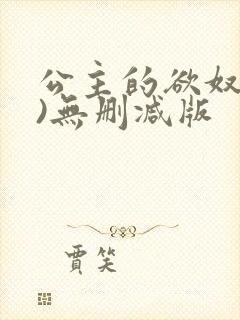 公主的欲奴
)無删减版
賈笑